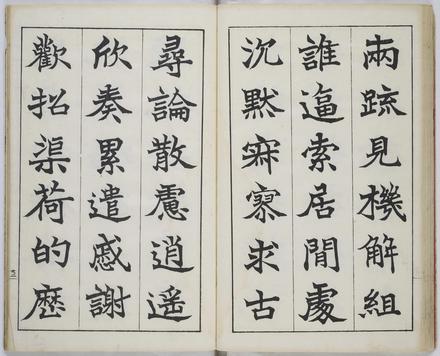 兩䟽見機解組
誰逼索居閒處
沉默寂寥求古
尋論散慮逍遥
欣奏累遣慼謝
歡招渠荷的歷